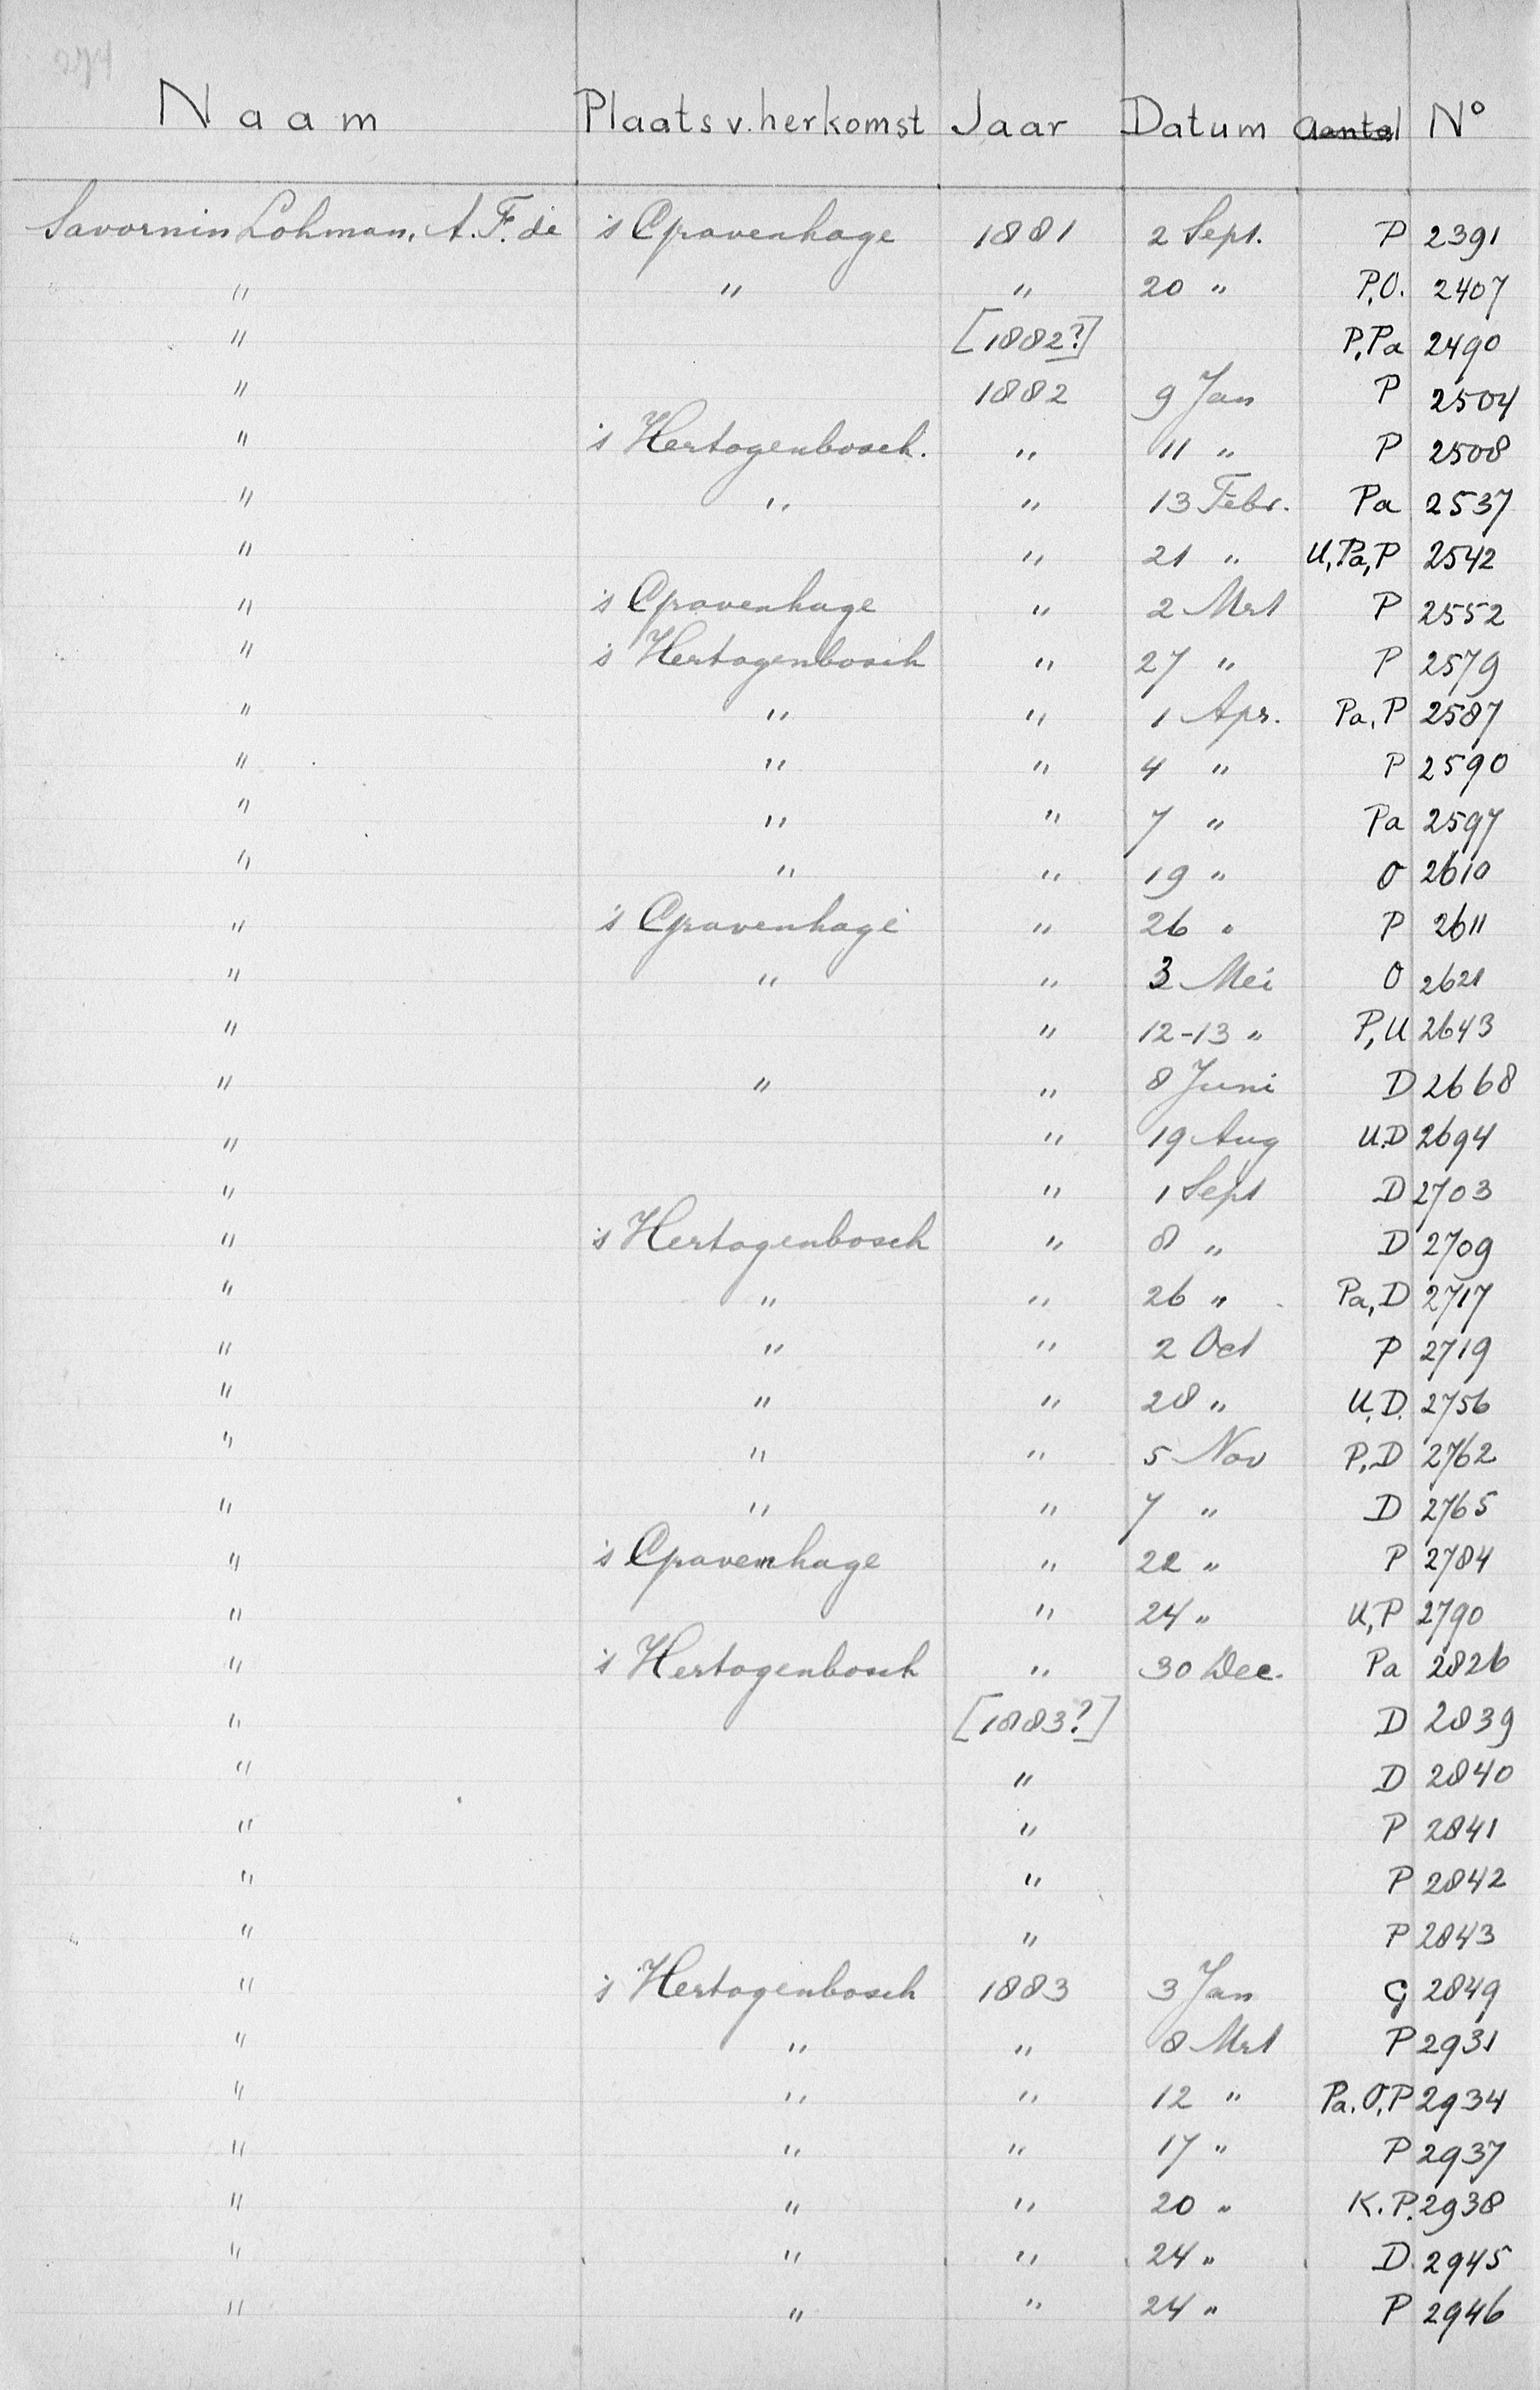 274
Naam Plaats v. herkomst Jaar Datum Aantal No
Savornin Lohman, A. F. de 's Gravenhage 1881 2 Sept. P 2391
" " " 20 " P,O. 2407
" [1882?] P,Pa 2490
" 1882 9 Jan P 2504
" 's Hertogenbosch. " 11 " P 2508
" " " 13 Febr. Pa 2537
" " 21 " U,Pa,P 2542
" 's Gravenhage " 2 Mrt P 2552
" 's Hertogenbosch " 27 " P 2579
" " " 1 Apr. Pa,P 2587
" " " 4 " P 2590
" " " 7 " Pa 2597
" " " 19 " O 2610
" 's Gravenhage " 26 " P 2611
" " " 3 Mei O 2621
" " 12-13 " P,U 2643
" " " 8 Juni D 2668
" " 19 Aug U.D 2694
" " 1 Sept D 2703
" 's Hertogenbosch " 8 " D 2709
" " " 26 " Pa,D 2717
" " " 2 Oct P 2719
" " " 28 " U.D. 2756
" " " 5 Nov P,D 2762
" " " 7 " D 2765
" 's Gravenhage " 22 " P 2784
" " 24 " U,P 2790
" 's Hertogenbosch " 30 Dec. Pa 2826
" [1883?] D 2839
" " D 2840
" " P 2841
" " P 2842
" " P 2843
" 's Hertogenbosch 1883 3 Jan G 2849
" " " 8 Mrt P 2931
" " " 12 " Pa.O,P 2934
" " " 17 " P 2937
" " " 20 " K.P. 2938
" " " 24 " D. 2945
" " " 24 " P 2946